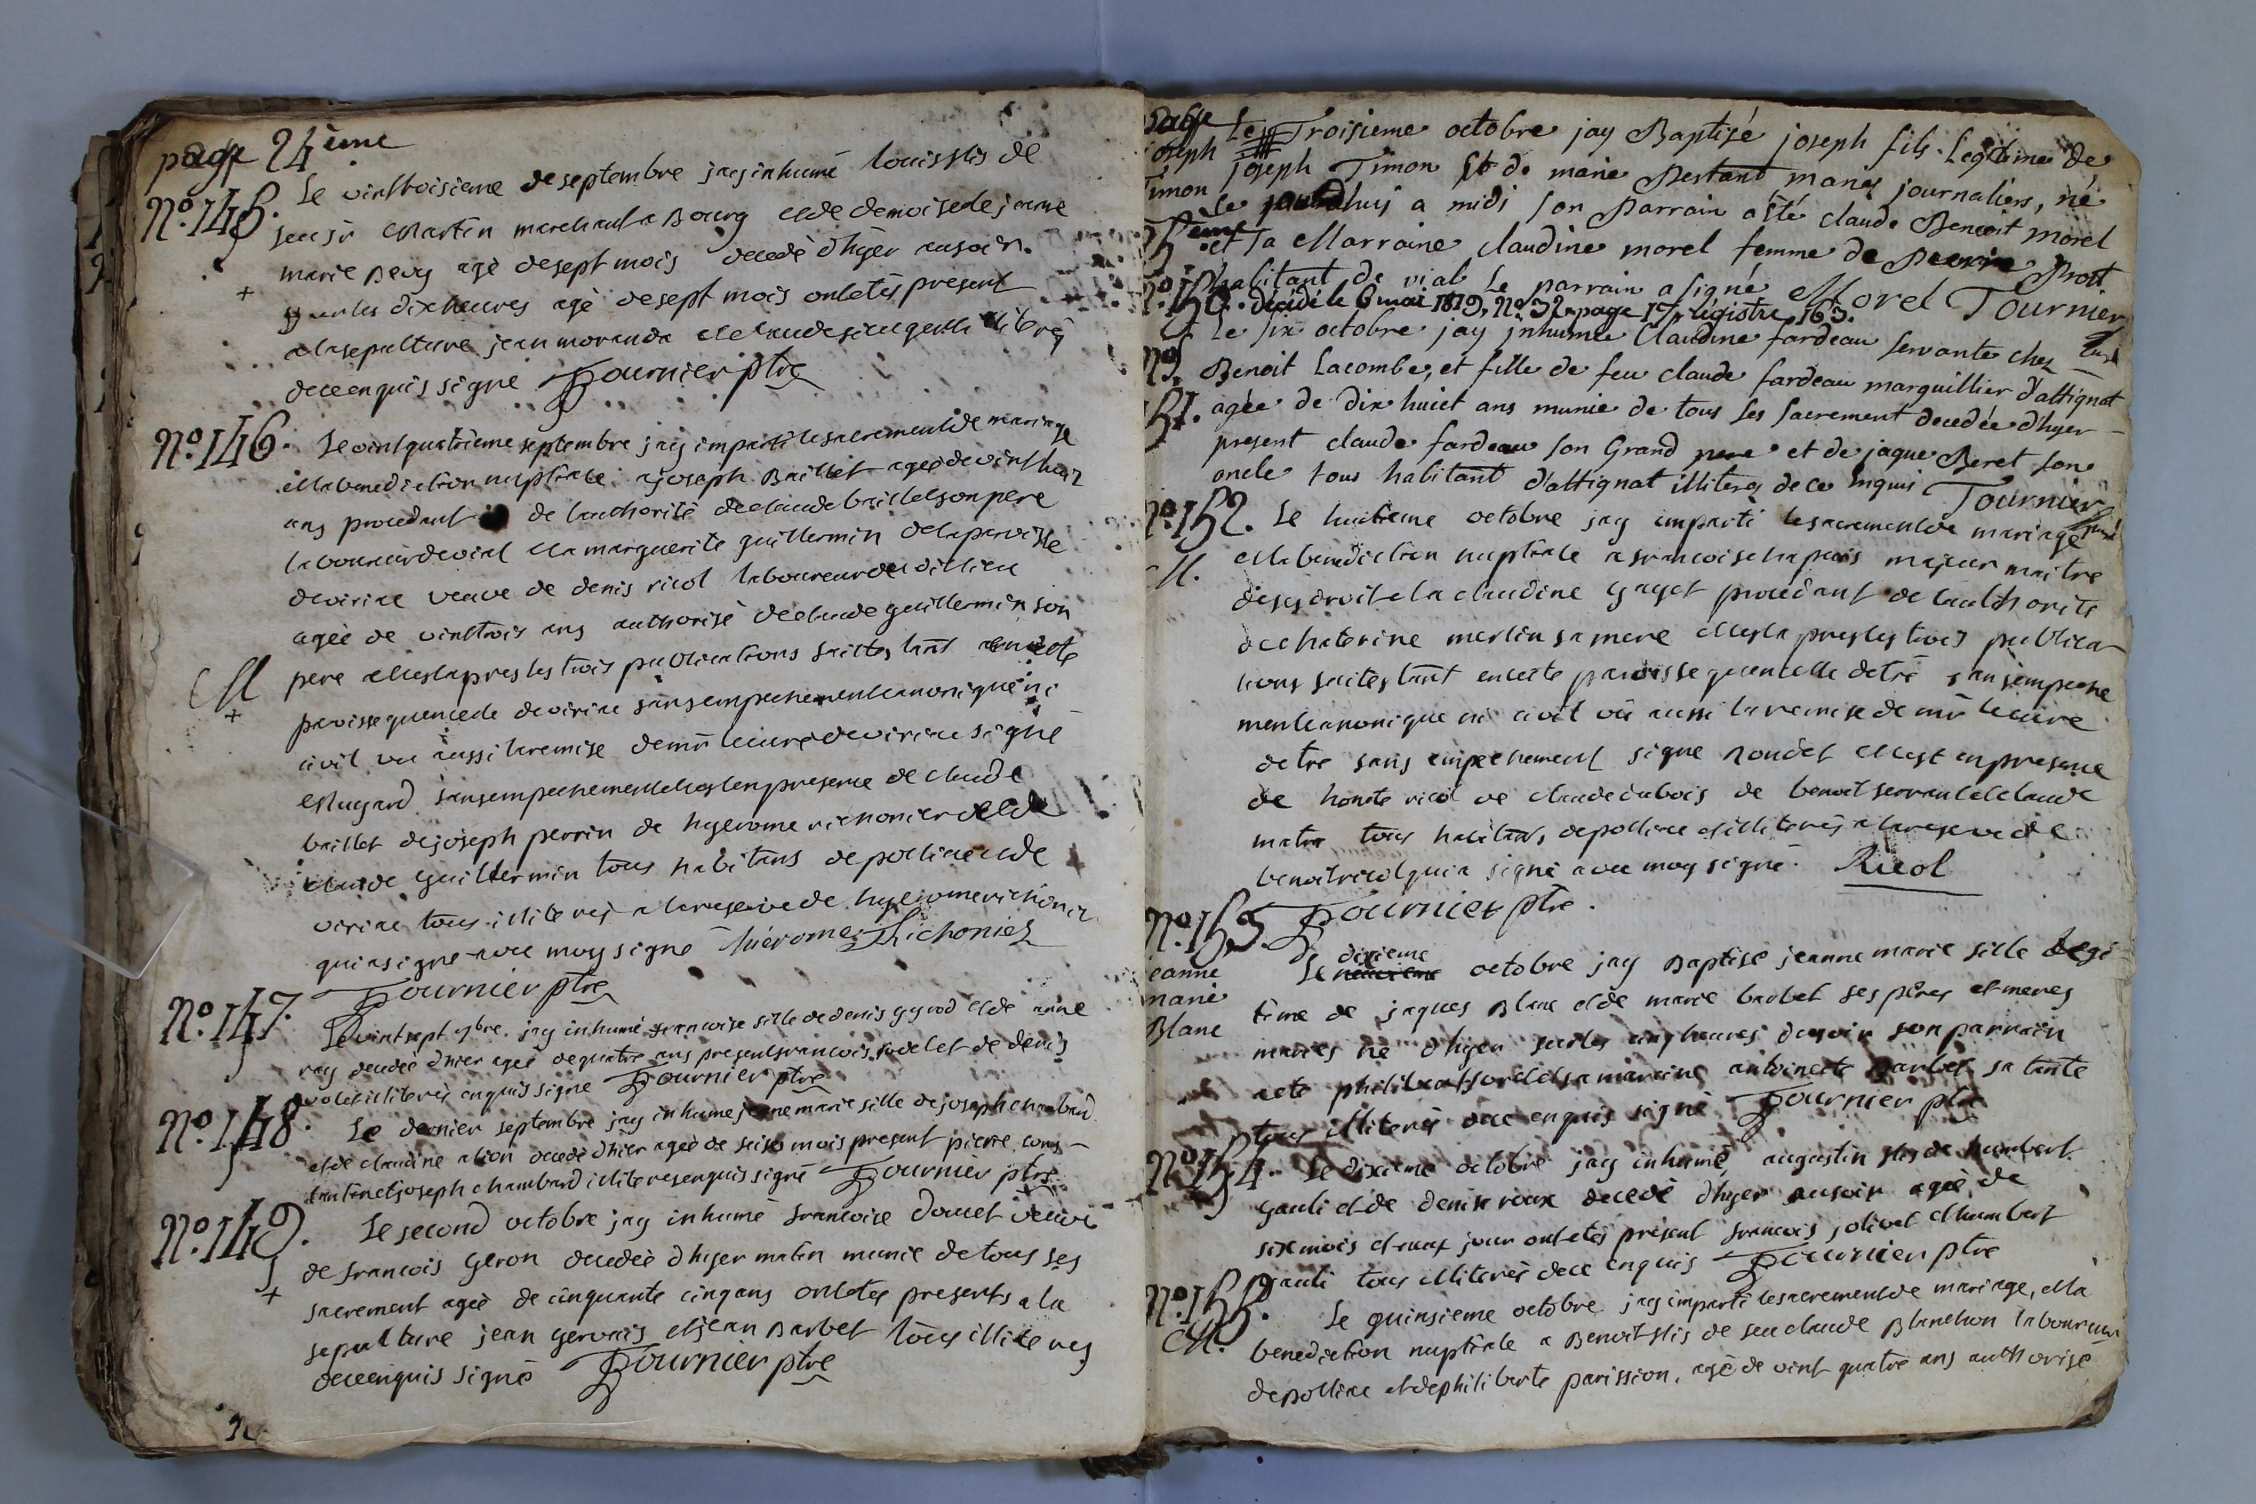 page 24ème
No. 145. Le vinttroisieme de septembre jay inhumé louis fils de
feu sr Martin marchant a Bourg et de demoiselle jeanne
marie Bevy agé de sept mois decedé dhÿer ausoir
sur les dix heures agé de sept mois ont etés present
a la sepulture jean moranda et claude illiterés
dece enquis signé Tournier ptre
No. 146. Le vint quatrieme septembre jay imparti le sacrement de mariage
et la benediction nuptiale a joseph Baillet agée de vint huit
ans procedant de lauthorité de claude baillet son pere
laboureur de vial et a marguerite guillermin de la paroisse
de viriac veuve de denis ricol laboureur du dit lieu
agée de vinttrois ans authorisé de claude guillermin son
pere et ce apres les trois publications faittes tant en cette
paroisse quen celle de viriac sans empechement canonique ni
civil vu aussi la remise de mr le curé de viriac signé
sans empechement et ce en presence de claude
baillet de joseph perrin de hyerome richonier et de
claude guillermin tous habitans de polliac et de
viriac tous illiterés a la reserve de hyerome richonier
qui a signé avec moy signé hiérome Richoniez
Tournier ptre
No. 147. Le vintsept 7bre jay inhumé francoise fille de denis gyrod et de anne
rey decedée dhier agée de quatre ans present francois et de denis
illiterés enquis signé Tournier ptre
No. 148. Le dernier septembre jay inhumé jeanne marie fille de joseph chambard
et de claudine alion decedé dhier agée de seise mois present pierre cons-
tantin et joseph chambard illiteres enquis signé Tournier ptre
No. 149. Le second octobre jay inhumé francoise douet veuve
de francois Geron decedée dhyer matin munie de tous ses
sacrement agée de cinquante cinq ans ont etés presents a la
sepulture jean gervais et jean Barbet tous illiterés
dece enquis signé Tournier ptre
page Le Troisieme octobre jay Baptisé joseph fils Legitime de
joseph joseph Timon et de marie Pertant mariés journaliers, né
Timon le jourdhuy a midi son Parrain a été claude Benoit morel
et sa Marraine claudine morel femme de Pierre Prost
habitant de vial le parrain a signé Morel Tournier
No. 150. décédé le 6 mai 1819, No. 32, page 17, régistre 163.
Le six octobre jay inhumée Claudine fardeau servante chez curé
No. Benoit Lacombe, et fille de feu claude fardeau marguillier dattignat
151. agée de dix huict ans munie de tous les sacrement decedée dhyer
present claude fardeau son Grand pere et de jaque Beret son
oncle tous habitant dattignat illiteres de ce enquis Tournier
No. 152. Le huitieme octobre jay imparti le sacrement de mariage curé
M. et la benediction nuptiale a francois chapuis majeur maitre
de ses droit et a claudine gaget procedant de lauthorité
de chaterine merlin sa mere et ce apres les trois publica-
tions faites tant en cette paroisse quen celle detré sans empeche
ment canonique ni civil vu aussi la remise de mr le curé
detré sans empechement signé et ce en presence
de honoré ricol de claude dubois de benoit ferrand et claude
tous habitans de polliac et illiterés a la reserve de
benoit ricol qui a signé avec moy signé. Ricol
Tournier ptre.
No. 153.
dixieme
jeanne Le neuvieme octobre jay Baptisé jeanne marie fille legi-
marie time de jaques Blanc et de marie barbet ses peres et meres
Blanc mariés né dhyer sur les cinq heures du soir son parrain
a eté et sa maraine antoinette barbet sa tante
tous illiterés dece enquis signé Tournier ptre
No. 154. Le dixieme octobre jay inhumé augustin fils de humbert
gauli et de denise roux decedé dhyer ausoir agée de
six mois et jour ont etés present francois jolivet et humbert
gauli tous illiterés dece enquis Tournier ptre
No. 155. Le quinsieme octobre jay imparti le sacrement de mariage, et la
M. benediction nuptiale a Benoit fils de feu claude Blanchon laboureur
de polliac et de philiberte parission, agé de vint quatre ans authorisé